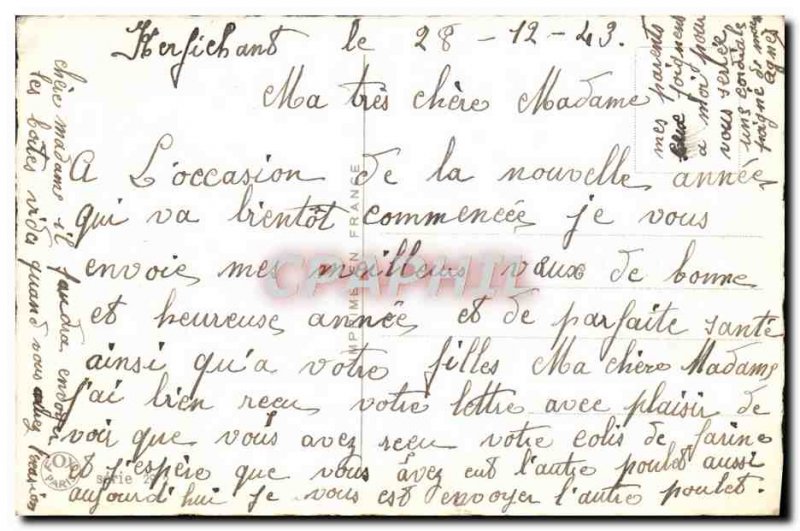 Kersichant le 28-12-43.
Ma très chère Madame
A L'occasion de la nouvelle année
qui va bientôt commencée je vous
envoie mes meilleurs vœux de bonne
et heureuse année et de parfaite santé
ainsi qu'a votre filles Ma chère Madame
j'ai bien reçu votre lettre avec plaisir de
voir que vous avez reçu votre colis de farine
et j'espère que vous avez eut l'autre poulet aussi
aujourd'hui je vous est envoyer l'autre poulet.
chère madame il faudra envoyer
les boîtes vides quand vous aurez l'occasion
mes parents
ce joignent
a moi pour
vous
une cordiale
poigné de main
Agnes
IMPRIMÉ EN FRANCE
CPAPHIL
PARIS
série